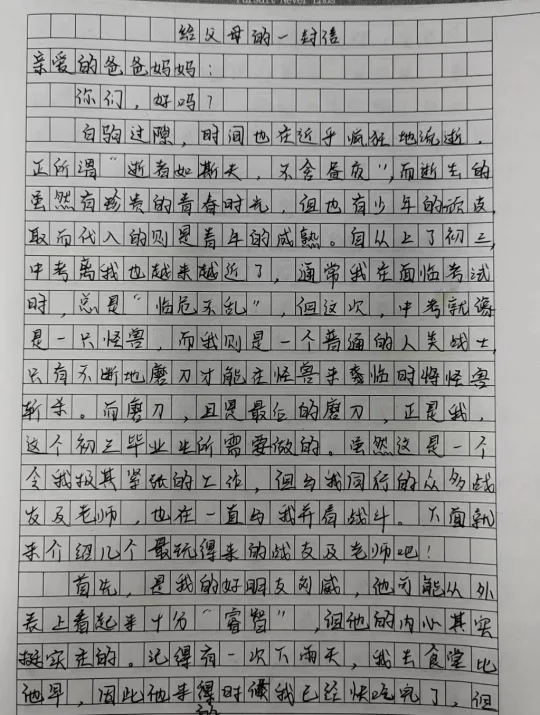 给父母的一封信
亲爱的爸爸妈妈:
你们,好吗?
白驹过隙,时间也在近乎疯狂地流逝,
正所谓“逝者如斯夫,不舍昼夜”,而逝去的
虽然有珍贵的青春时光,但也有少年的顽皮,
取而代入的则是青年的成熟。自从上了初三,
中考离我也越来越近了,通常我在面临考试
时,总是“临危不乱”,但这次,中考就像
是一只怪兽,而我则是一个普通的人类战士,
只有不断地磨刀才能在怪兽来袭临时将怪兽
斩杀。而磨刀,且是最后的磨刀,正是我,
这个初三毕业生所需要做的。虽然这是一个
令我极其紧张的工作,但与我同行的众多战
友及老师,也在一直与我并肩战斗。下面就
来介绍几个最玩得来的战友及老师吧!
首先,是我的好朋友刘威,他可能从外
表上看起来十分“睿智”,但他的内心其实
挺实在的。记得有一次下雨天,我去食堂比
他早,因此他来得时候我已经快吃完了,但